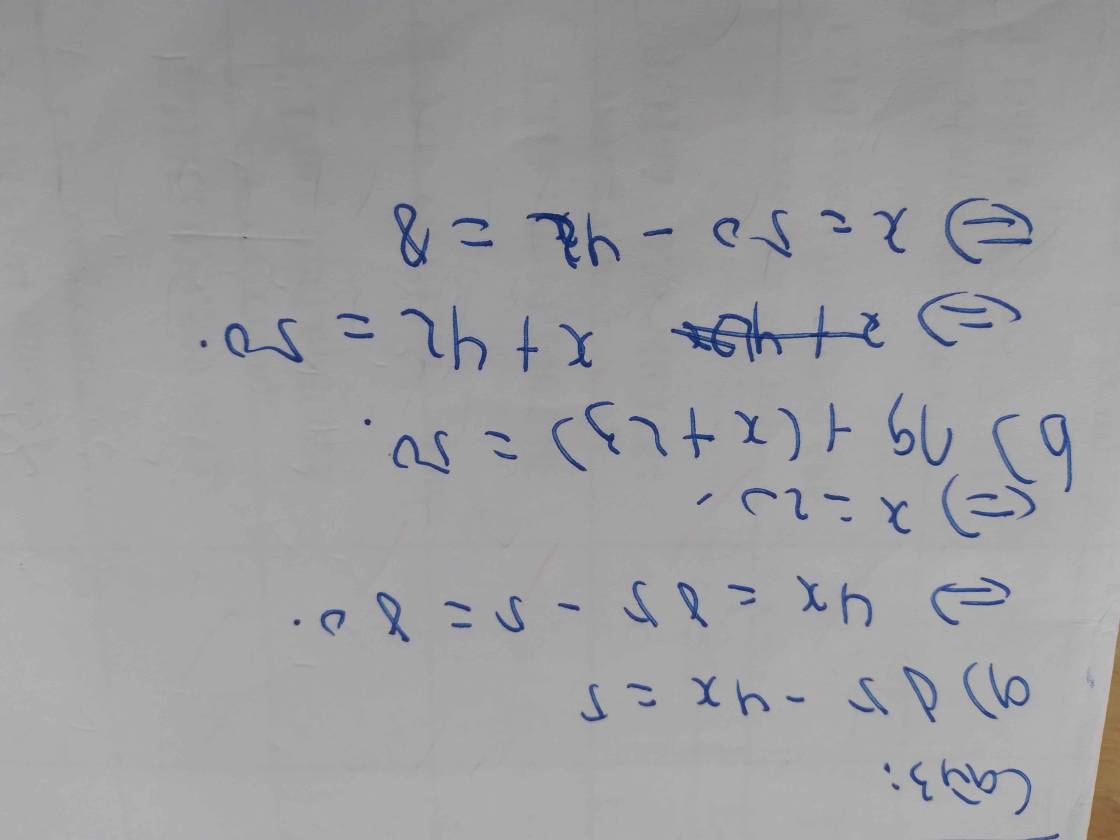 Câu 3:
a) 85 - 4x = 5
<=> 4x = 85 - 5 = 80.
<=> x = 20.
b) 19 + (x + 23) = 50.
<=> x + 42 = 50.
<=> x = 50 - 42 = 8